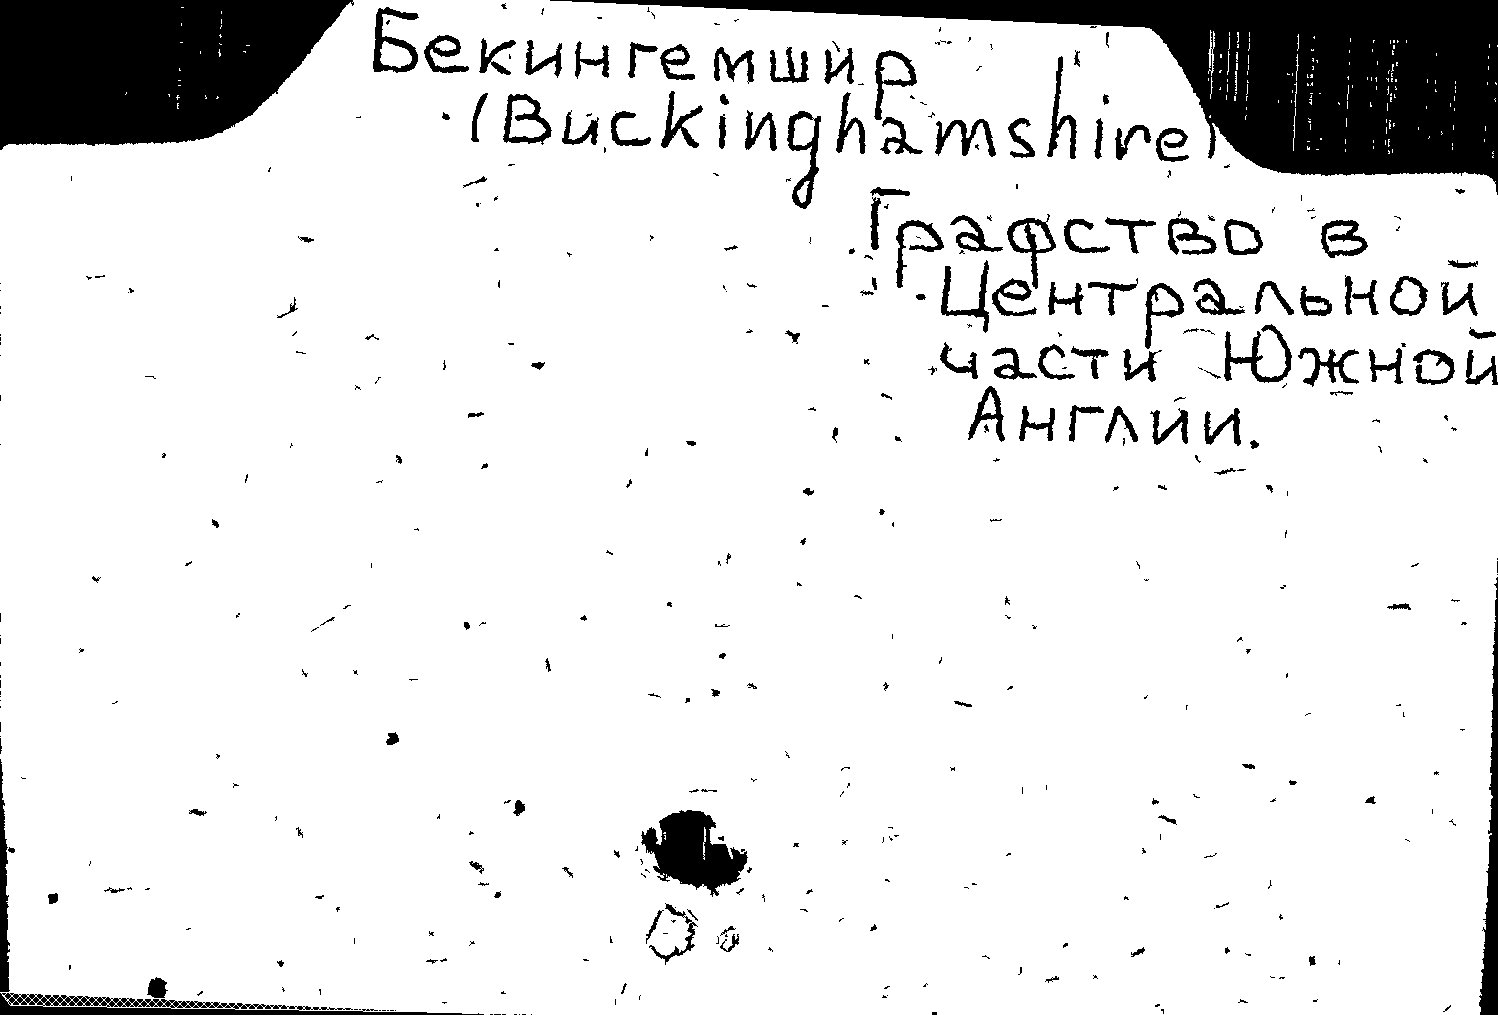 Бекингемшир
(Buckinghamshire)
Графство в
Центральной
части Южной
Англии.